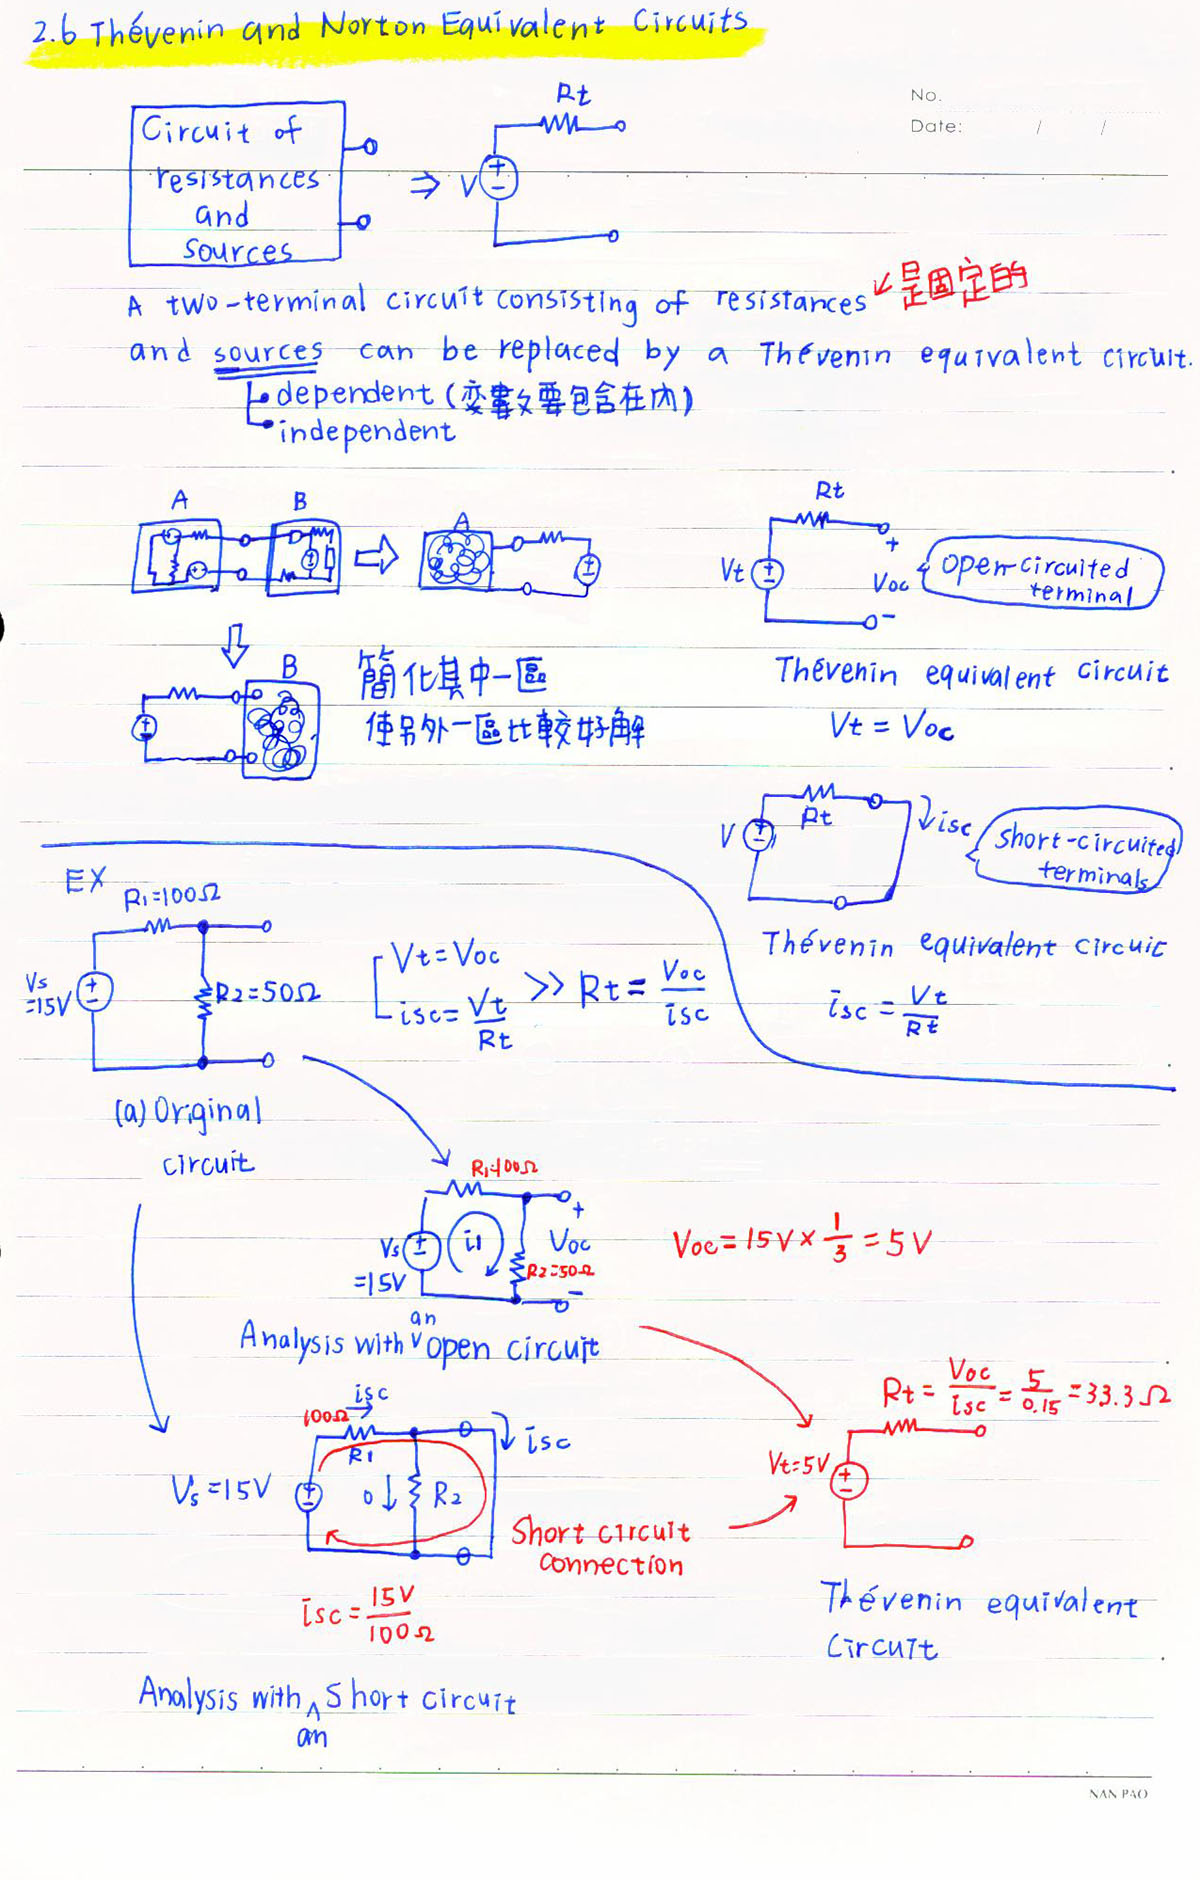 2.6 Thévenin and Norton Equivalent Circuits
No.
Date: / /
Circuit of
resistances
and
sources
⇒
Rt
V
+
−
A two-terminal circuit consisting of resistances
是固定的
and sources can be replaced by a Thévenin equivalent circuit.
dependent (变數要包含在內)
independent
A
B
A
B
簡化其中一區
使另外一區比較好解
Rt
Vt
+
Voc
−
open-circuited
terminal
Thévenin equivalent circuit
Vt = Voc
V
Rt
isc
short-circuited
terminals
Thévenin equivalent circuic
isc = Vt/Rt
EX
R1=100Ω
Vs
=15V
R2=50Ω
Vt=Voc
isc= Vt/Rt
>> Rt = Voc/isc
(a) Original
circuit
R1=100Ω
Vs
=15V
i1
+
Voc
R2=50Ω
−
Voc = 15V × 1/3 = 5V
an
Analysis with ∨ open circuit
isc
100Ω
R1
isc
Vs=15V
0↓
R2
Short circuit
connection
isc = 15V/100Ω
Rt = Voc/isc = 5/0.15 = 33.3Ω
Vt=5V
Thévenin equivalent
circuit
Analysis with ∧ short circuit
an
NAN PAO